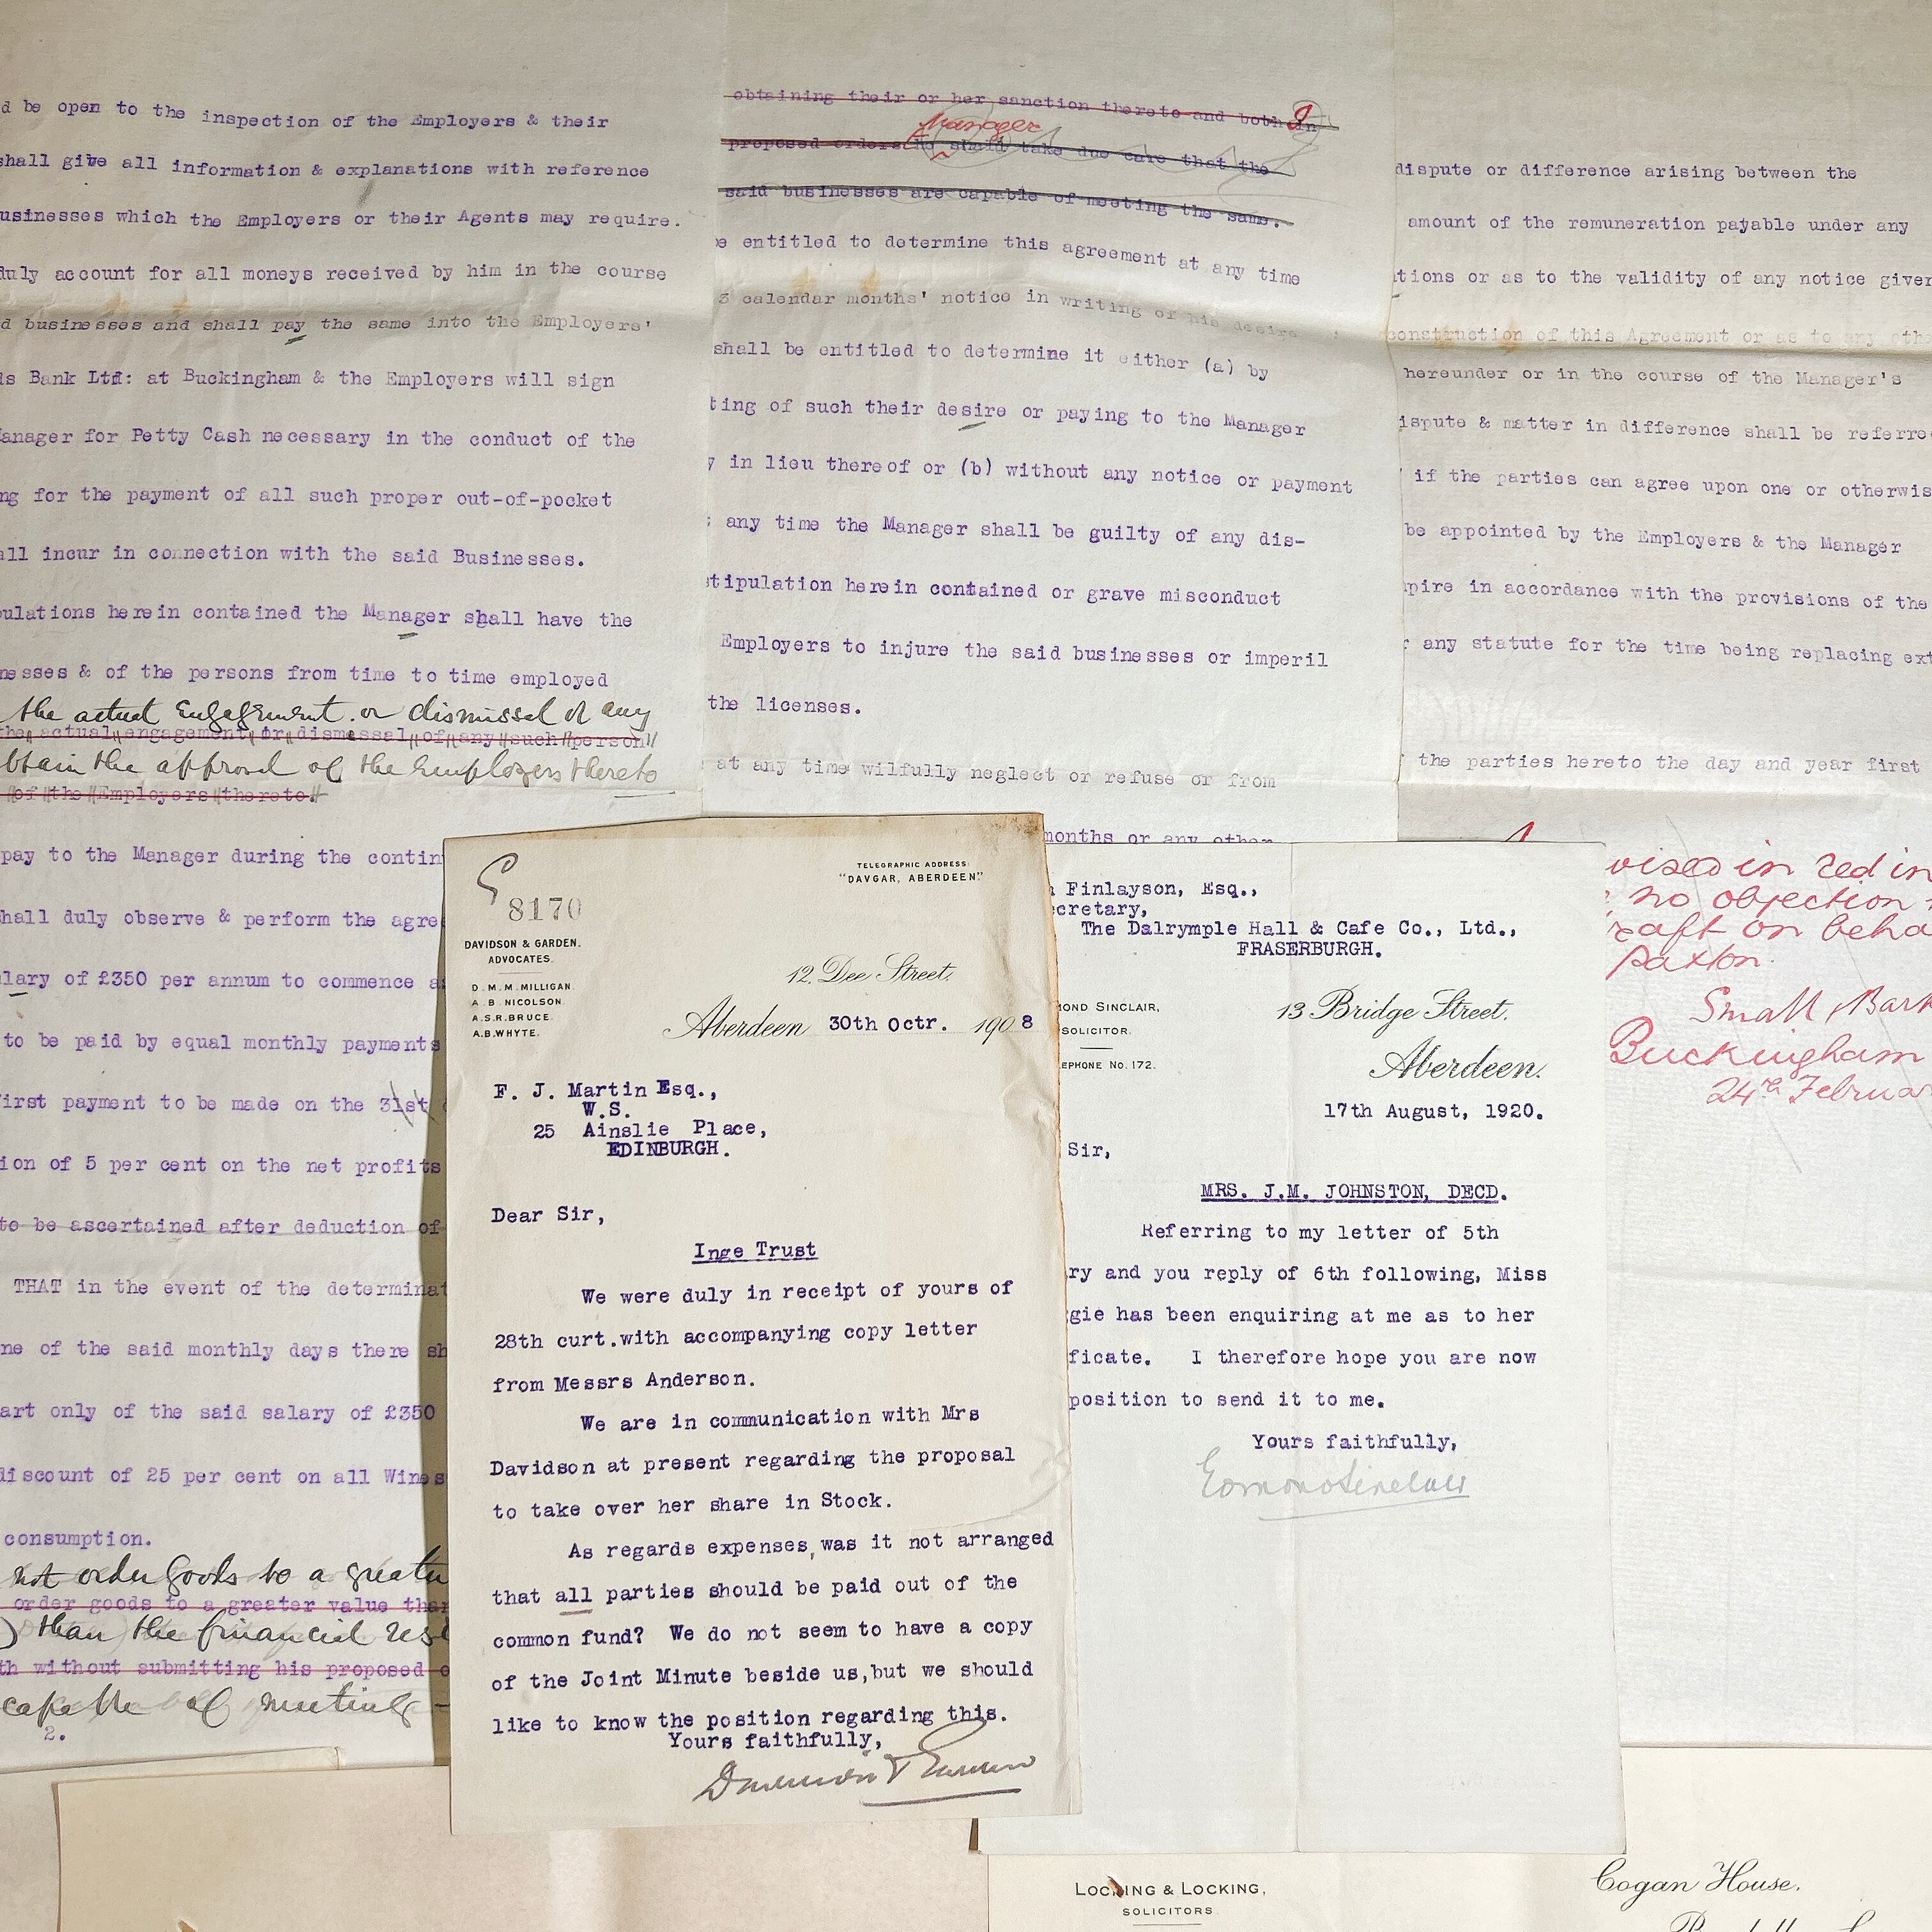 d be open to the inspection of the Employers & their
shall give all information & explanations with reference
usinesses which the Employers or their Agents may require.
duly account for all moneys received by him in the course
d businesses and shall pay the same into the Employers'
ds Bank Ltd: at Buckingham & the Employers will sign
Manager for Petty Cash necessary in the conduct of the
ng for the payment of all such proper out-of-pocket
all incur in connection with the said Businesses.
pulations herein contained the Manager shall have the
nesses & of the persons from time to time employed
the actual engagement or dismissal of any
the actual engagement or dismissal of any such person
obtain the approval of the Employers thereto
of the Employers thereto.
pay to the Manager during the contin
hall duly observe & perform the agre
alary of £350 per annum to commence a
to be paid by equal monthly payments
first payment to be made on the 31st
ion of 5 per cent on the net profits
to be ascertained after deduction of
THAT in the event of the determinat
ne of the said monthly days there sh
art only of the said salary of £350
discount of 25 per cent on all Wines
consumption.
not order goods to a greater
order goods to a greater value than
than the financial res
th without submitting his proposed o
capable of meeting
2.
obtaining their or her sanction thereto and both in
Manager
proposed orders he shall take due care that the
said businesses are capable of meeting the same.
be entitled to determine this agreement at any time
3 calendar months' notice in writing of his desire
shall be entitled to determine it either (a) by
ting of such their desire or paying to the Manager
y in lieu thereof or (b) without any notice or payment
any time the Manager shall be guilty of any dis-
stipulation herein contained or grave misconduct
Employers to injure the said businesses or imperil
the licenses.
at any time wilfully neglect or refuse or from
months or any other
dispute or difference arising between the
amount of the remuneration payable under any
ations or as to the validity of any notice given
construction of this Agreement or as to any othe
hereunder or in the course of the Manager's
ispute & matter in difference shall be referre
if the parties can agree upon one or otherwis
be appointed by the Employers & the Manager
mpire in accordance with the provisions of the
r any statute for the time being replacing ext
the parties hereto the day and year first
vised in red in
no objection
raft on beha
Paxton.
Small & Bark
Buckingham
24th Februa
8170
TELEGRAPHIC ADDRESS:
"DAVGAR, ABERDEEN."
DAVIDSON & GARDEN.
ADVOCATES.
D. M. M. MILLIGAN.
A. B. NICOLSON.
A.S.R. BRUCE.
A.B. WHYTE.
12, Dee Street,
Aberdeen 30th Octr. 1908
F. J. Martin Esq.,
W.S.
25 Ainslie Place,
EDINBURGH.
Dear Sir,
Inge Trust
We were duly in receipt of yours of
28th curt.with accompanying copy letter
from Messrs Anderson.
We are in communication with Mrs
Davidson at present regarding the proposal
to take over her share in Stock.
As regards expenses,was it not arranged
that all parties should be paid out of the
common fund? We do not seem to have a copy
of the Joint Minute beside us,but we should
like to know the position regarding this.
Yours faithfully,
Davidson & Garden
n Finlayson, Esq.,
ecretary,
The Dalrymple Hall & Cafe Co., Ltd.,
FRASERBURGH.
MOND SINCLAIR,
SOLICITOR.
EPHONE No. 172.
13 Bridge Street,
Aberdeen.
17th August, 1920.
Sir,
MRS. J.M. JOHNSTON, DECD.
Referring to my letter of 5th
ry and you reply of 6th following, Miss
gie has been enquiring at me as to her
ficate. I therefore hope you are now
position to send it to me.
Yours faithfully,
Edmond Sinclair
LOCKING & LOCKING,
SOLICITORS
Cogan House,